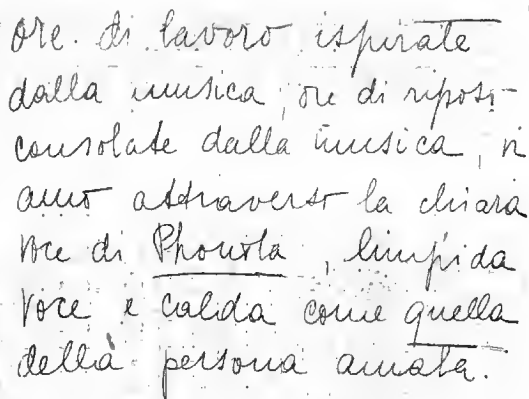 ore di lavoro ispirate
dalla musica, ore di riposo
consolate dalla musica, vi
amo attraverso la chiara
voce di Phonola, limpida
voce e calda come quella
della persona amata.